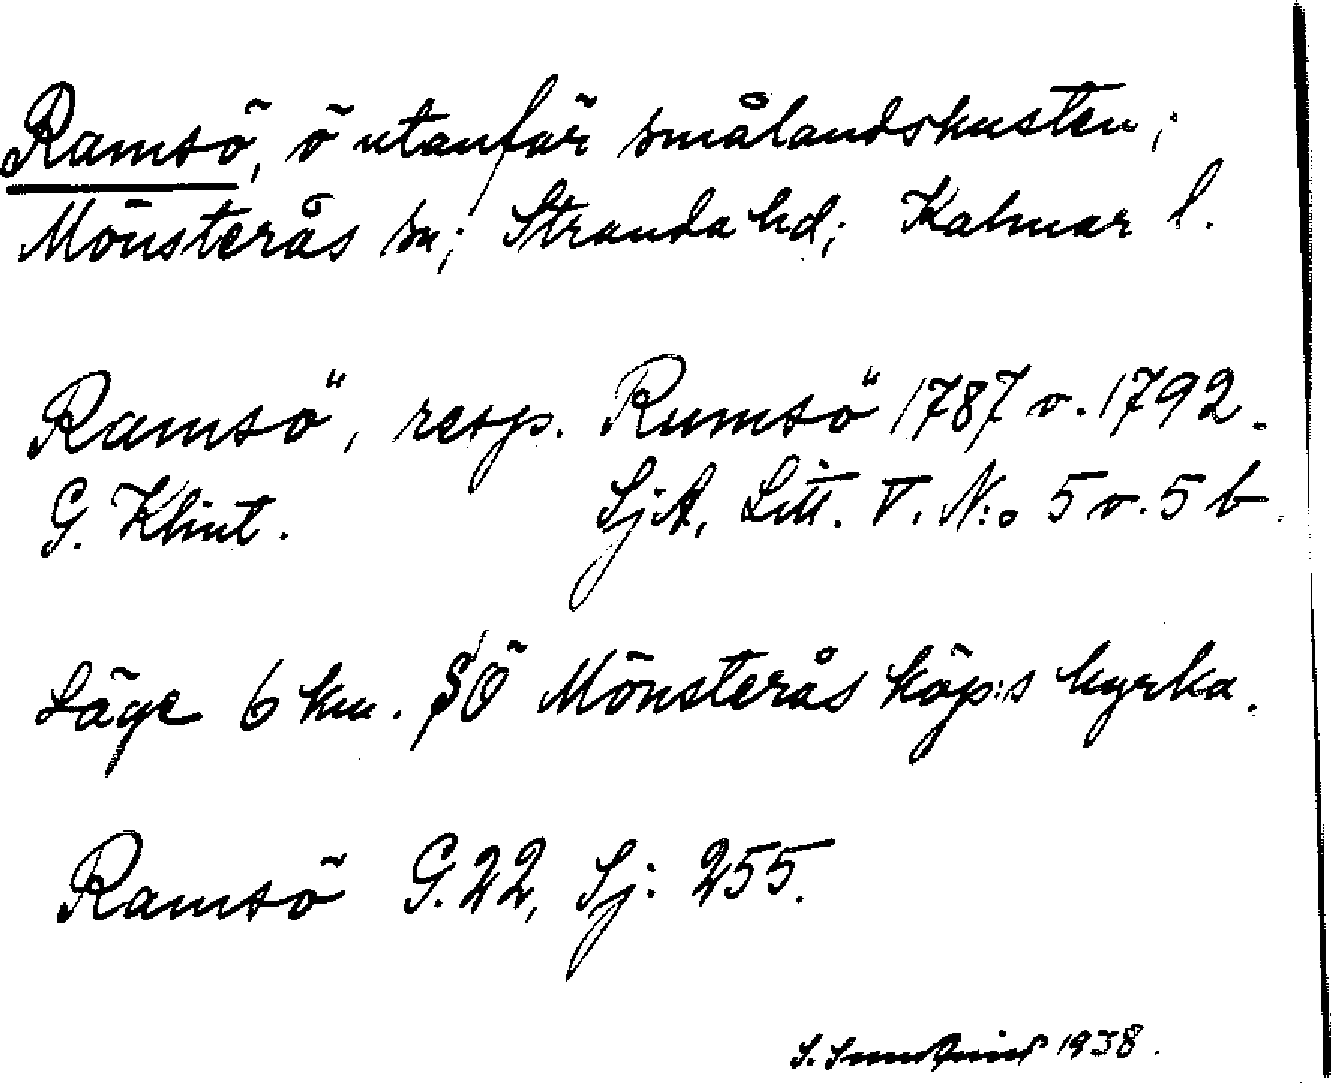 Ramsö, ö utanför smålandskusten;
Mönsterås sn; Stranda hd; Kalmar l.
Ramsö", resp. Rumsö" 1787 o. 1792.
G. Klint. SjA, Litt. V. N:o 5 o. 5 b.
Läge 6 km. SÖ Mönsterås köp:s kyrka.
Ramsö G. 22, Sj: 255.
S. 1938.